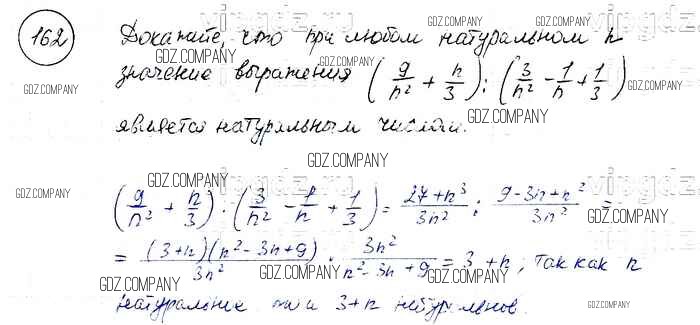 162 Докажите, что при любом натуральном n
значение выражения (9/n² + n/3) : (3/n² - 1/n + 1/3)
является натуральным числом.
(9/n² + n/3) : (3/n² - 1/n + 1/3) = (27+n³)/(3n²) : (9-3n+n²)/(3n²) =
= ((3+n)(n²-3n+9))/(3n²) · (3n²)/(n²-3n+9) = 3+n, так как n
натуральные 3+n
vipgdz.ru
GDZ.COMPANY